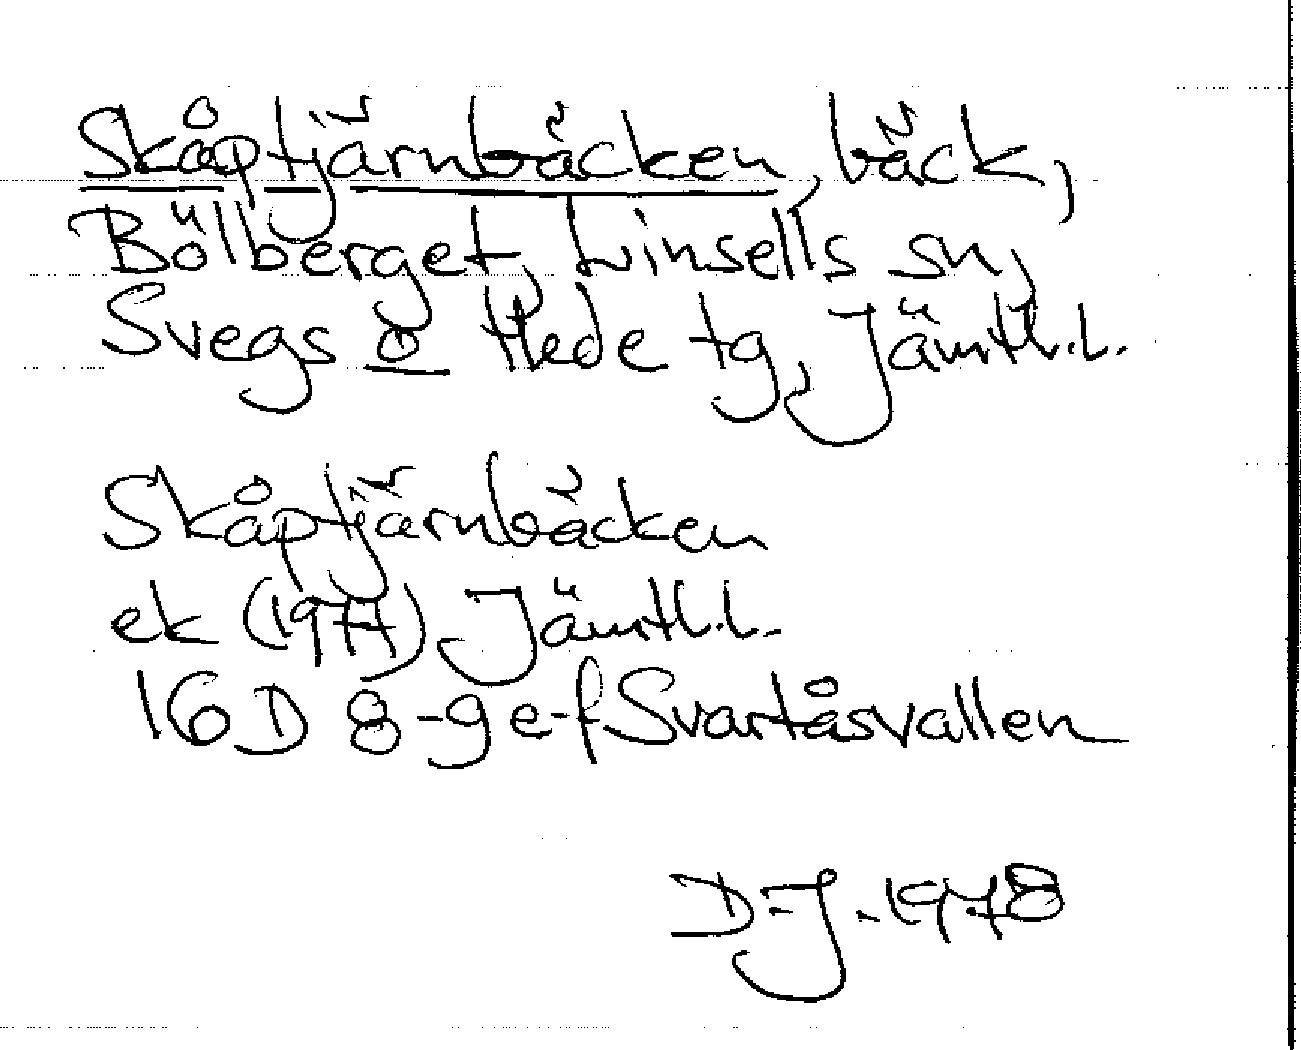 Skåptjärnbäcken, bäck,
Bölberget, Linsells sn,
Svegs o Hede tg, Jämtl.l.
Skåptjärnbäcken
ek (1977) Jämtl.l.
16 D 8-9 e-f Svartåsvallen
D.J. 1978